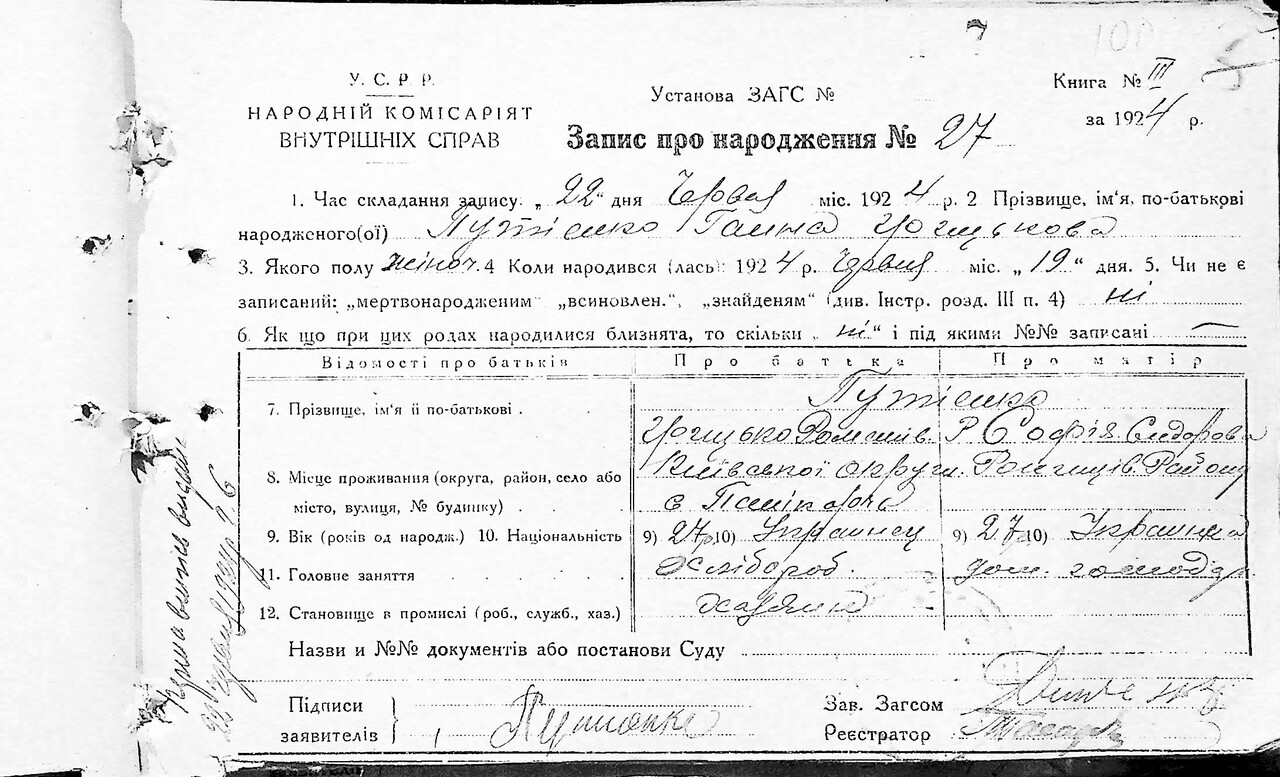 7
У. С. Р. Р.
НАРОДНІЙ КОМІСАРІЯТ
ВНУТРІШНІХ СПРАВ
Установа ЗАГС №
Запис про народження № 27
Книга № III
за 1924 р.
1. Час складання запису. „22" дня Червня міс. 1924 р. 2 Прізвище, ім'я, по-батькові
народженого(ої) Путієнко Ганна Грицькова
3. Якого полу жіноч. 4 Коли народився (лась): 1924 р. Червня міс. „19" дня. 5. Чи не є
записаний: „мертвонародженим" „всиновлен.", „знайденям" (див. Інстр. розд. III п. 4) ні
6. Як що при цих родах народилися близнята, то скільки „ні" і під якими №№ записані —
Відомості про батьків Про батька Про матір
7. Прізвище, ім'я й по-батькові . Путієнко
Грицько Романів. Софія Сидорова
8. Місце проживання (округа, район, село або Київської округи. Район
місто, вулиця, № будинку) с
9. Вік (років од народж.) 10. Національність 9) 27 р. 10) Українец 9) 27 р. 10) Українка
11. Головне заняття Хлібороб. дом. господар.
12. Становище в промислі (роб., служб., хаз.) Хазяїн
Назви и №№ документів або постанови Суду
Підписи
заявителів
Зав. Загсом
Реєстратор